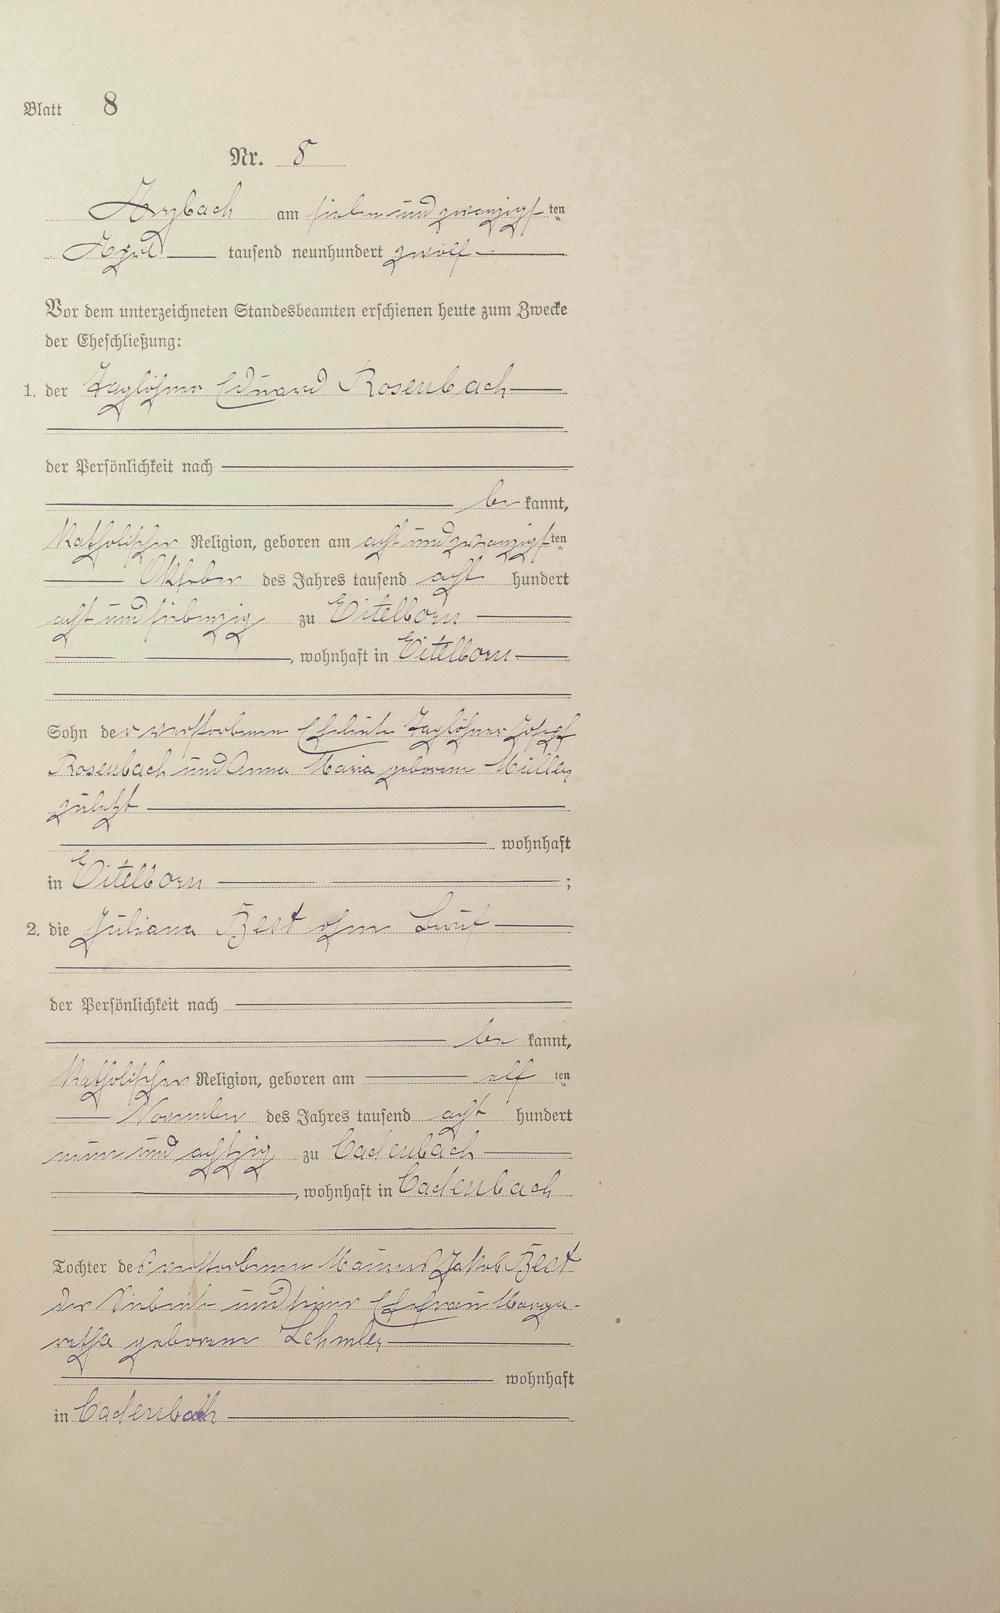 Blatt 8
Nr. 8
Arzbach am sieben und zwanzigsten
April tausend neunhundert zwölf
Vor dem unterzeichneten Standesbeamten erschienen heute zum Zwecke
der Eheschließung:
1. der Taglöhner Eduard Rosenbach
der Persönlichkeit nach
bekannt,
Katholischer Religion, geboren am acht und zwanzigsten
Oktober des Jahres tausend acht hundert
acht und siebenzig zu Eitelborn
, wohnhaft in Eitelborn
Sohn der verstorbenen Eheleute Taglöhner Josef
Rosenbach und Anna Maria geborene Müller
zuletzt
wohnhaft
in Eitelborn ;
2. die Juliana Best ohne Beruf
der Persönlichkeit nach
bekannt,
Katholischer Religion, geboren am elften
November des Jahres tausend acht hundert
neun und achtzig zu Cadenbach
, wohnhaft in Cadenbach
Tochter des verstorbenen Maurers Jakob Best
der Siebente und seiner Ehefrau Marga-
retha geborene Lehmler
wohnhaft
in Cadenbach